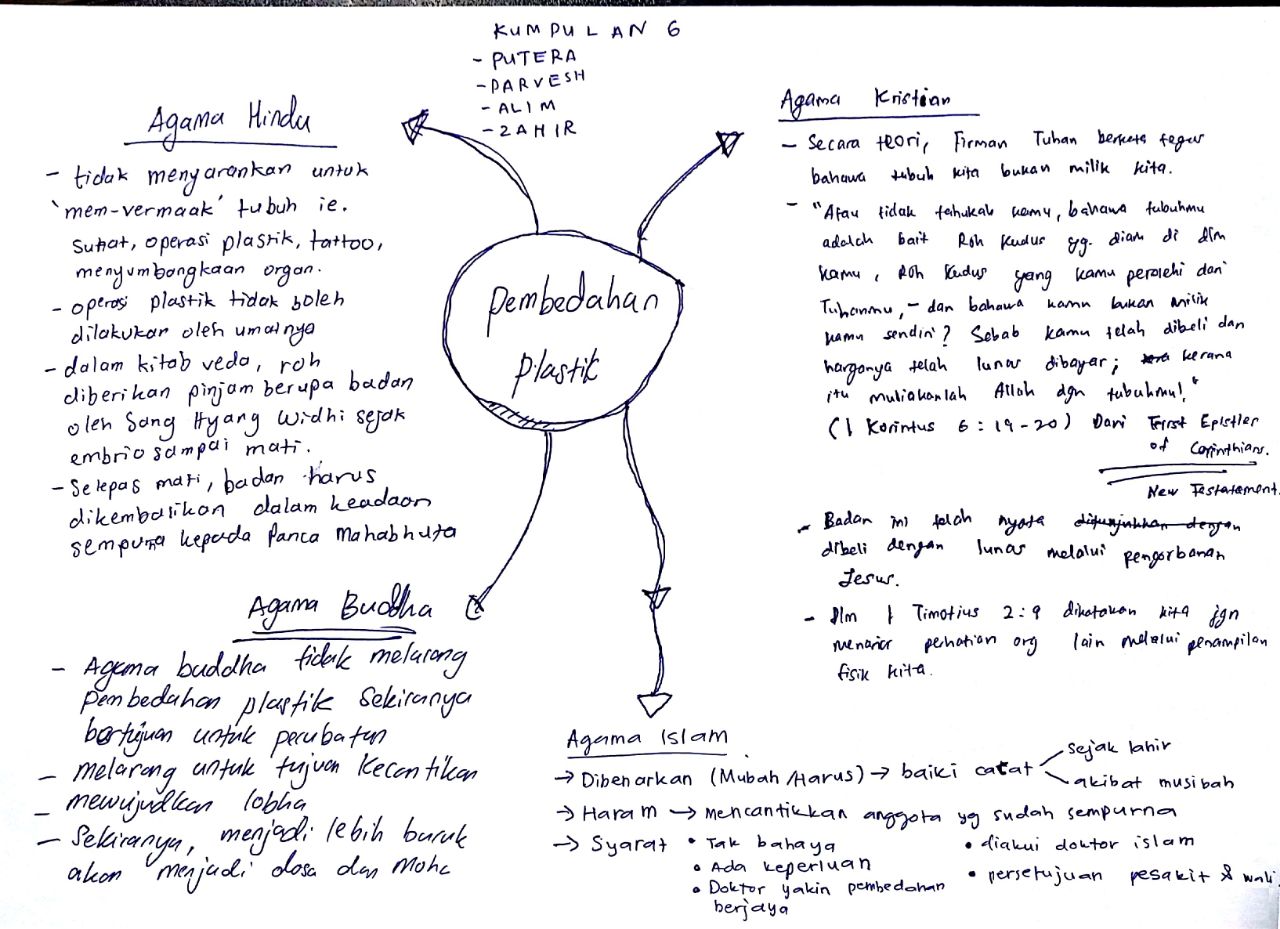 KUMPULAN 6
- PUTERA
- PARVESH
- ALIM
- ZAHIR
Pembedahan
Plastik
Agama Hindu
- tidak menyarankan untuk
'mem-vermaak' tubuh ie.
Sunat, operasi plastik, tattoo,
menyumbangkaan organ.
- operasi plastik tidak boleh
dilakukan oleh umatnya
- dalam kitab veda, roh
diberikan pinjam berupa badan
oleh Sang Hyang Widhi sejak
embrio sampai mati.
- Selepas mati, badan harus
dikembalikan dalam keadaan
sempurna kepada Panca Mahabhuta
Agama Kristian
- Secara teori, Firman Tuhan berkata tegas
bahawa tubuh kita bukan milik kita.
- "Atau tidak tahukah kamu, bahawa tubuhmu
adalah bait Roh Kudus yg. diam di dlm
kamu, Roh Kudus yang kamu perolehi dari
Tuhanmu, - dan bahawa kamu bukan milik
kamu sendiri? Sebab kamu telah dibeli dan
harganya telah lunas dibayar; kerana
itu muliakanlah Allah dgn tubuhmu!"
(1 Korintus 6 : 19 - 20) Dari First Epistler
of Corinthians.
New Testatement.
- Badan ini telah nyata ditunjukkan dengan
dibeli dengan lunas melalui pengorbanan
Jesus.
- Dlm 1 Timotius 2:9 dikatakan kita jgn
menarik perhatian org lain melalui penampilan
fisik kita.
Agama Buddha
- Agama buddha tidak melarang
Pembedahan plastik Sekiranya
bertujuan untuk perubatan
- melarang untuk tujuan Kecantikan
- mewujudkan lobha
- Sekiranya, menjadi lebih buruk
akan menjadi dosa dan Moha
Agama Islam
→ Dibenarkan (Mubah/Harus) → baiki cacat
sejak lahir
akibat musibah
→ Haram → mencantikkan anggota yg sudah sempurna
→ Syarat • Tak bahaya
• Ada keperluan
• Doktor yakin pembedahan
berjaya
• diakui doktor islam
• persetujuan pesakit & wali.